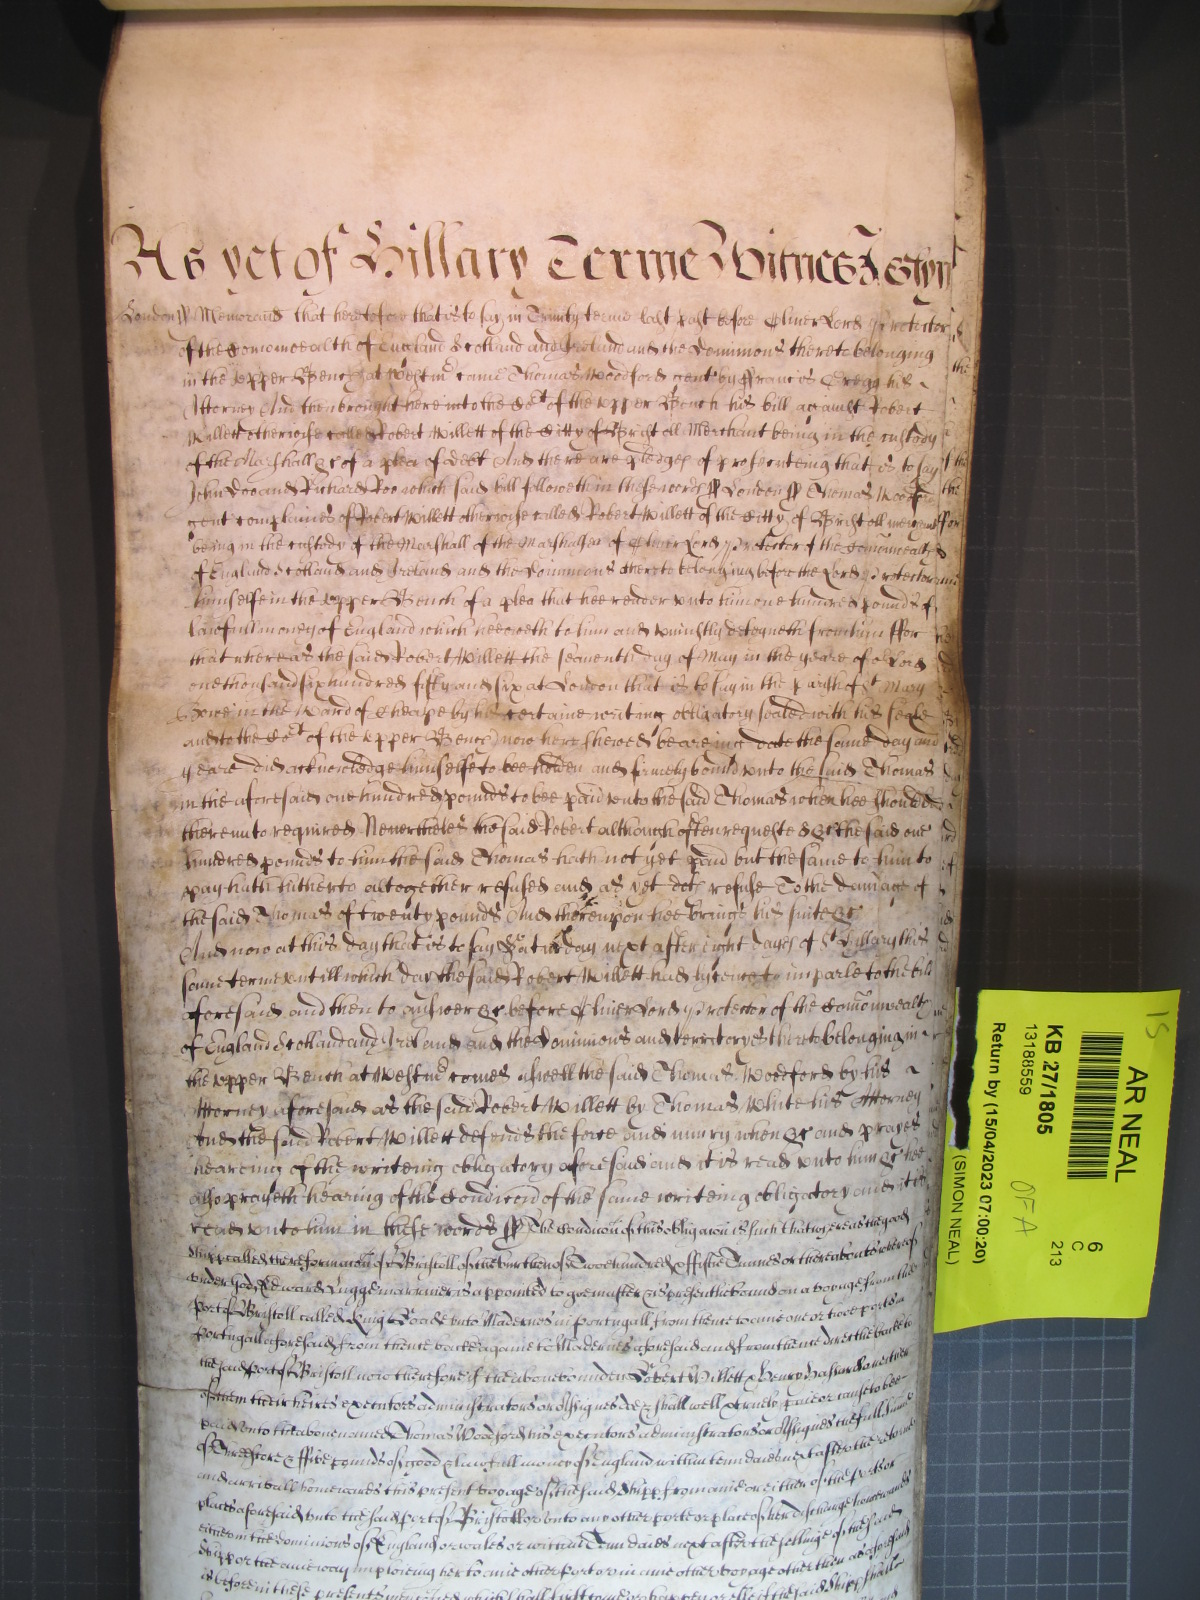 As yet of Hillary Terme Witnes
London ss Memorand that heretofore that is to say in Trinity terme last past before Oliver Lord Protector
of the Comonwealth of England Scotland and Ireland and the Dominions thereto belonging
in the upper Bench at Westmr came Thomas Woodford gent by Francis Gregg his
Attorney And then brought here into the Cort of the upper Bench his bill against Robert
Willett otherwise called Robert Willett of the Citty of Bristoll Merchant being in the custody
of the Marshall &c of a plea of debt And there are pledges of prosecuteing that is to say
John Doo and Richard Roo which said bill followeth in these words ss London ss Thomas Woodford
gent complaines of Robert Willett otherwise called Robert Willett of the Citty of Bristoll
being in the custody of the Marshall of the Marshalsey of Oliver Lord Protector of the Comonwealth
of England Scotland and Ireland and the Dominions thereto belonging before the Lord Protector
himselfe in the upper Bench of a plea that hee render unto him one hundred pounds of
lawfull money of England which hee oweth to him and uniustly deteyneth from him ffor
that whereas the said Robert Willett the seaventh day of May in the yeare of or Lord
one thousand six hundred fifty and six at London that is to say in the parish of St Mary
Bowe in the Ward of Cheape by his certaine writing obligatory sealed with his seale
and to the Cort of the upper Bench now here shewed beareing date the same day and
yeare did acknowledge himselfe to bee holden and firmely bound unto the said Thomas
in the aforesaid one hundred pounds to bee paid unto the said Thomas when hee should bee
thereunto required Neverthelesse the said Robert although often requested &c the said one
hundred pounds to him the said Thomas hath not yet paid but the same to him to
pay hath hitherto altogether refused and as yet doth refuse To the damage of
the said Thomas of twenty pounds And thereupon hee brings his suite &c
And now at this day that is to say Saturday next after eight dayes of St Hillary this
same terme untill which day the said Robert Willett had lycence to imparle to the bill
aforesaid and then to answer &c before Oliver Lord Protector of the Comonwealth
of England Scotland and Ireland and the Dominions and territoryes thereto belonging in
the upper Bench at Westmr comes aswell the said Thomas Woodford by his
Attorney aforesaid as the said Robert Willett by Thomas White his Attorney
And the said Robert Willett defends the force and iniury when &c and prayes
heareing of the writeing obligatory aforesaid and it is read unto him &c hee
also prayeth hearing of the Condicion of the same writeing obligatory and it is
read unto him in these wordes ss The Condicion of this obligation is such that whereas the good
shipp called the reformation of Bristoll of the burthen of Two hundred & ffiftie Tunnes or thereabouts whereof
under God Edward marriner is appointed to goe master is presentlie bound on a voyage from the
port of Bristoll called Kings Roade unto Maderues in portugall from thence to anie one or twoe ports
portugall aforesaid from thence backe againe to Maderues aforesaid and from thence directlie backe to
the said port of Bristoll now therefore if the above bounden Robert Willett & Henry or either
of them their heires executors administrators or Assignes doe & shall well & truely paie or cause to bee
paid unto the above named Thomas Woodford his executors administrators or Assignes the full summe
of Threescore & ffive pounds of good & lawfull money of England within tenn daies next after the returne
and arrivall homewards this present voyage of the said shipp from anie or either of the ports or
places aforesaid unto the said port of Bristoll or unto any other porte or place of her discharge homewards
either in the dominions of England or wales or within Tenn daies next after the selling of the said
shipp or the anie way imploieing her to anie other port or in anie other voyage other then as aforesaid
is before in these presents menconed which shall first come or happen or else if the said shipp shall
15
AR NEAL
6
C
213
OFA
KB 27/1805
13188559
Return by (15/04/2023 07:00:20)
(SIMON NEAL)